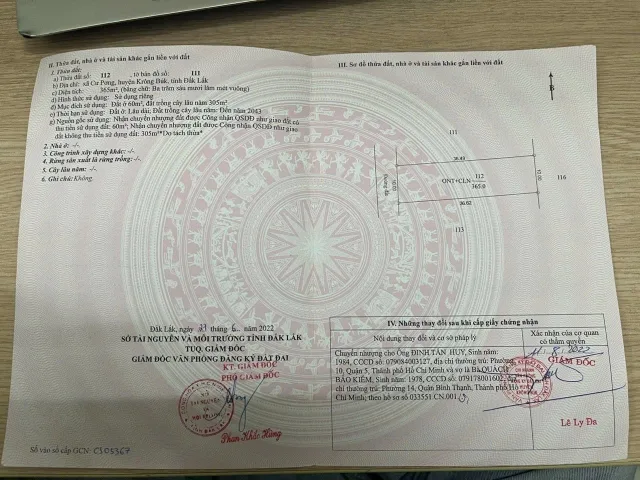 II. Thửa đất, nhà ở và tài sản khác gắn liền với đất
1. Thửa đất:
a) Thửa đất số: 112 , tờ bản đồ số: 111
b) Địa chỉ: xã Cư Pơng, huyện Krông Búk, tỉnh Đắk Lắk
c) Diện tích: 365m², (bằng chữ: Ba trăm sáu mươi lăm mét vuông)
d) Hình thức sử dụng: Sử dụng riêng
đ) Mục đích sử dụng: Đất ở 60m²; đất trồng cây lâu năm 305m²
e) Thời hạn sử dụng: Đất ở Lâu dài; Đất trồng cây lâu năm: Đến năm 2043
g) Nguồn gốc sử dụng: Nhận chuyển nhượng đất được Công nhận QSDĐ như giao đất có
thu tiền sử dụng đất: 60m²; Nhận chuyển nhượng đất được Công nhận QSDĐ như giao
đất không thu tiền sử dụng đất: 305m²*Do tách thửa*
2. Nhà ở: -/-
3. Công trình xây dựng khác: -/-
4. Rừng sản xuất là rừng trồng: -/-
5. Cây lâu năm: -/-
6. Ghi chú: Không.
Đắk Lắk, ngày 21 năm 2022
SỞ TÀI NGUYÊN VÀ MÔI TRƯỜNG TỈNH ĐẮK LẮK
TUQ. GIÁM ĐỐC
GIÁM ĐỐC VĂN PHÒNG ĐĂNG KÝ ĐẤT ĐAI
KT. GIÁM ĐỐC
PHÓ GIÁM ĐỐC
Phan Khắc Hùng
Số vào sổ cấp GCN: CS05367
III. Sơ đồ thửa đất, nhà ở và tài sản khác gắn liền với đất
B
111
36.40
Đường
10.02
ONT+CLN 112
365.0
10.00
116
36.62
113
IV. Những thay đổi sau khi cấp giấy chứng nhận
Nội dung thay đổi và cơ sở pháp lý
Xác nhận của cơ quan
có thẩm quyền
Chuyển nhượng cho Ông ĐINH TẤN HUY, Sinh năm:
1984, CCCD số: 079084003127, địa chỉ thường trú: Phường
10, Quận 5, Thành phố Hồ Chí Minh và vợ là Bà QUÁCH
BẢO KIẾM, Sinh năm: 1978, CCCD số: 079178001602, địa
chỉ thường trú: Phường 14, Quận Bình Thạnh, Thành phố Hồ
Chí Minh; theo hồ sơ số 033551.CN.001
11.8.2022
GIÁM ĐỐC
Lê Ly Đa